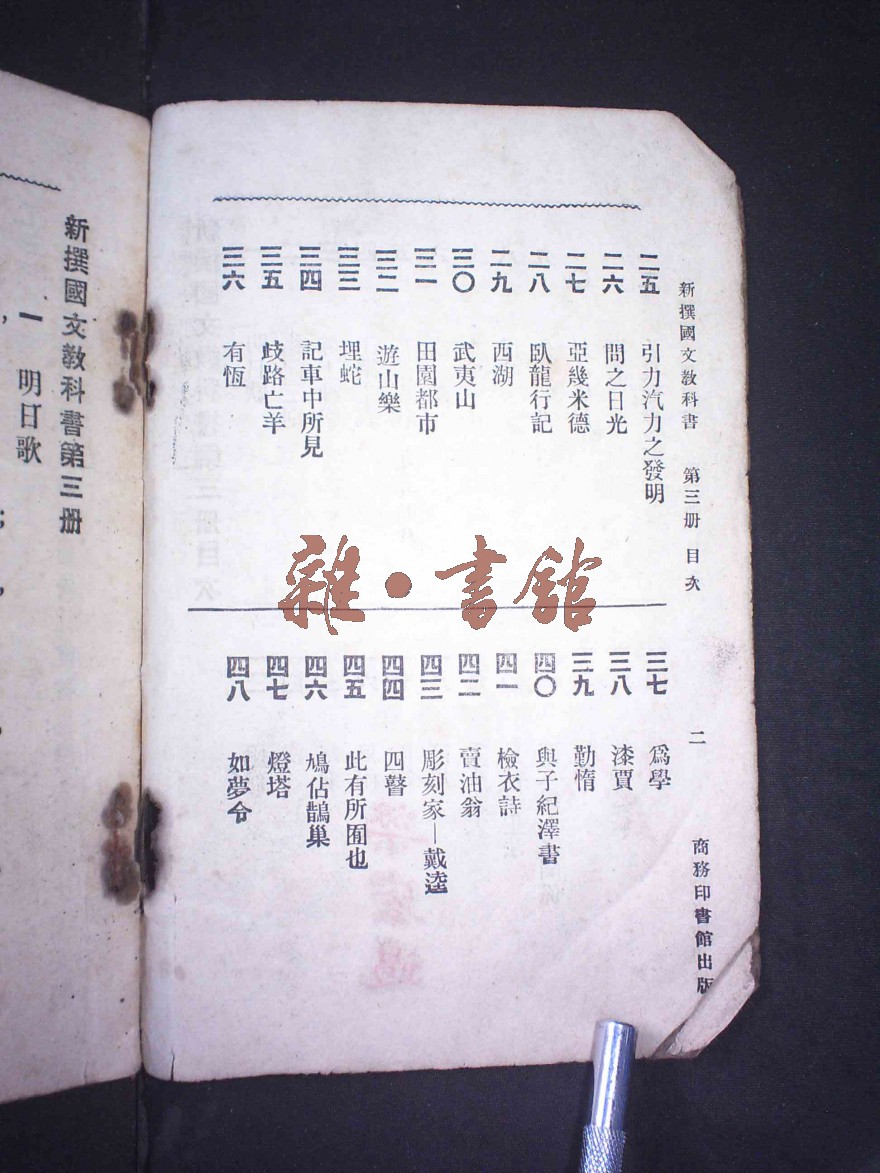 新撰國文教科書　第三册　目次　二　商務印書館出版
二五　引力汽力之發明
二六　問之日光
二七　亞幾米德
二八　臥龍行記
二九　西湖
三〇　武夷山
三一　田園都市
三二　遊山樂
三三　埋蛇
三四　記車中所見
三五　歧路亡羊
三六　有恆
三七　爲學
三八　漆賈
三九　勤惰
四〇　與子紀澤書
四一　檢衣詩
四二　賣油翁
四三　彫刻家—戴逵
四四　四瞽
四五　此有所囿也
四六　鳩佔鵲巢
四七　燈塔
四八　如夢令
新撰國文教科書第三册
一　明日歌
雜·書館